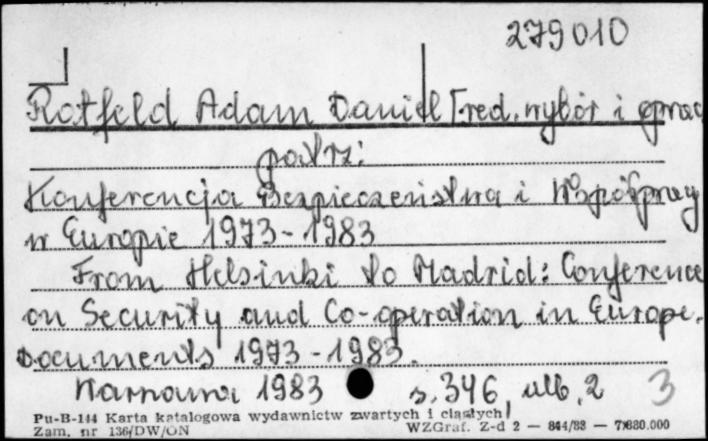 279010
Rotfeld Adam Daniel [red. wybór i oprac
patrz:
Konferencja Bezpieczeństwa i Współpracy
w Europie 1973-1983
From Helsinki to Madrid: Conference
on Security and Co-operation in Europe.
Documents 1973-1983.
Warszawa 1983 s. 346, alb, 2 3
Pu-B-144 Karta katalogowa wydawnictw zwartych i ciągłych
Zam. nr 136/DW/ON WZGraf. Z-d 2 — 844/83 — 7.680.000